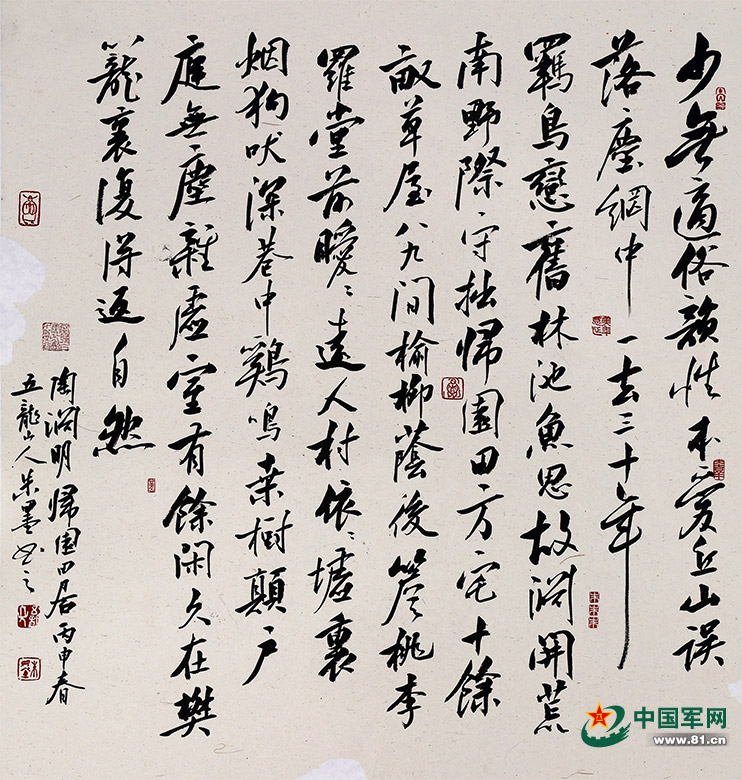 少無適俗韻性本愛丘山誤
落塵網中一去三十年
羈鳥戀舊林池魚思故淵開荒
南野際守拙歸園田方宅十餘
畝草屋八九間榆柳蔭後簷桃李
羅堂前曖〻遠人村依〻墟裏
烟狗吠深巷中鷄鳴桑樹顛户
庭無塵雜虛室有餘閑久在樊
籠裏復得返自然
陶淵明歸園田居丙申春
五龍山人朱墨書之
中国军网
www.81.cn